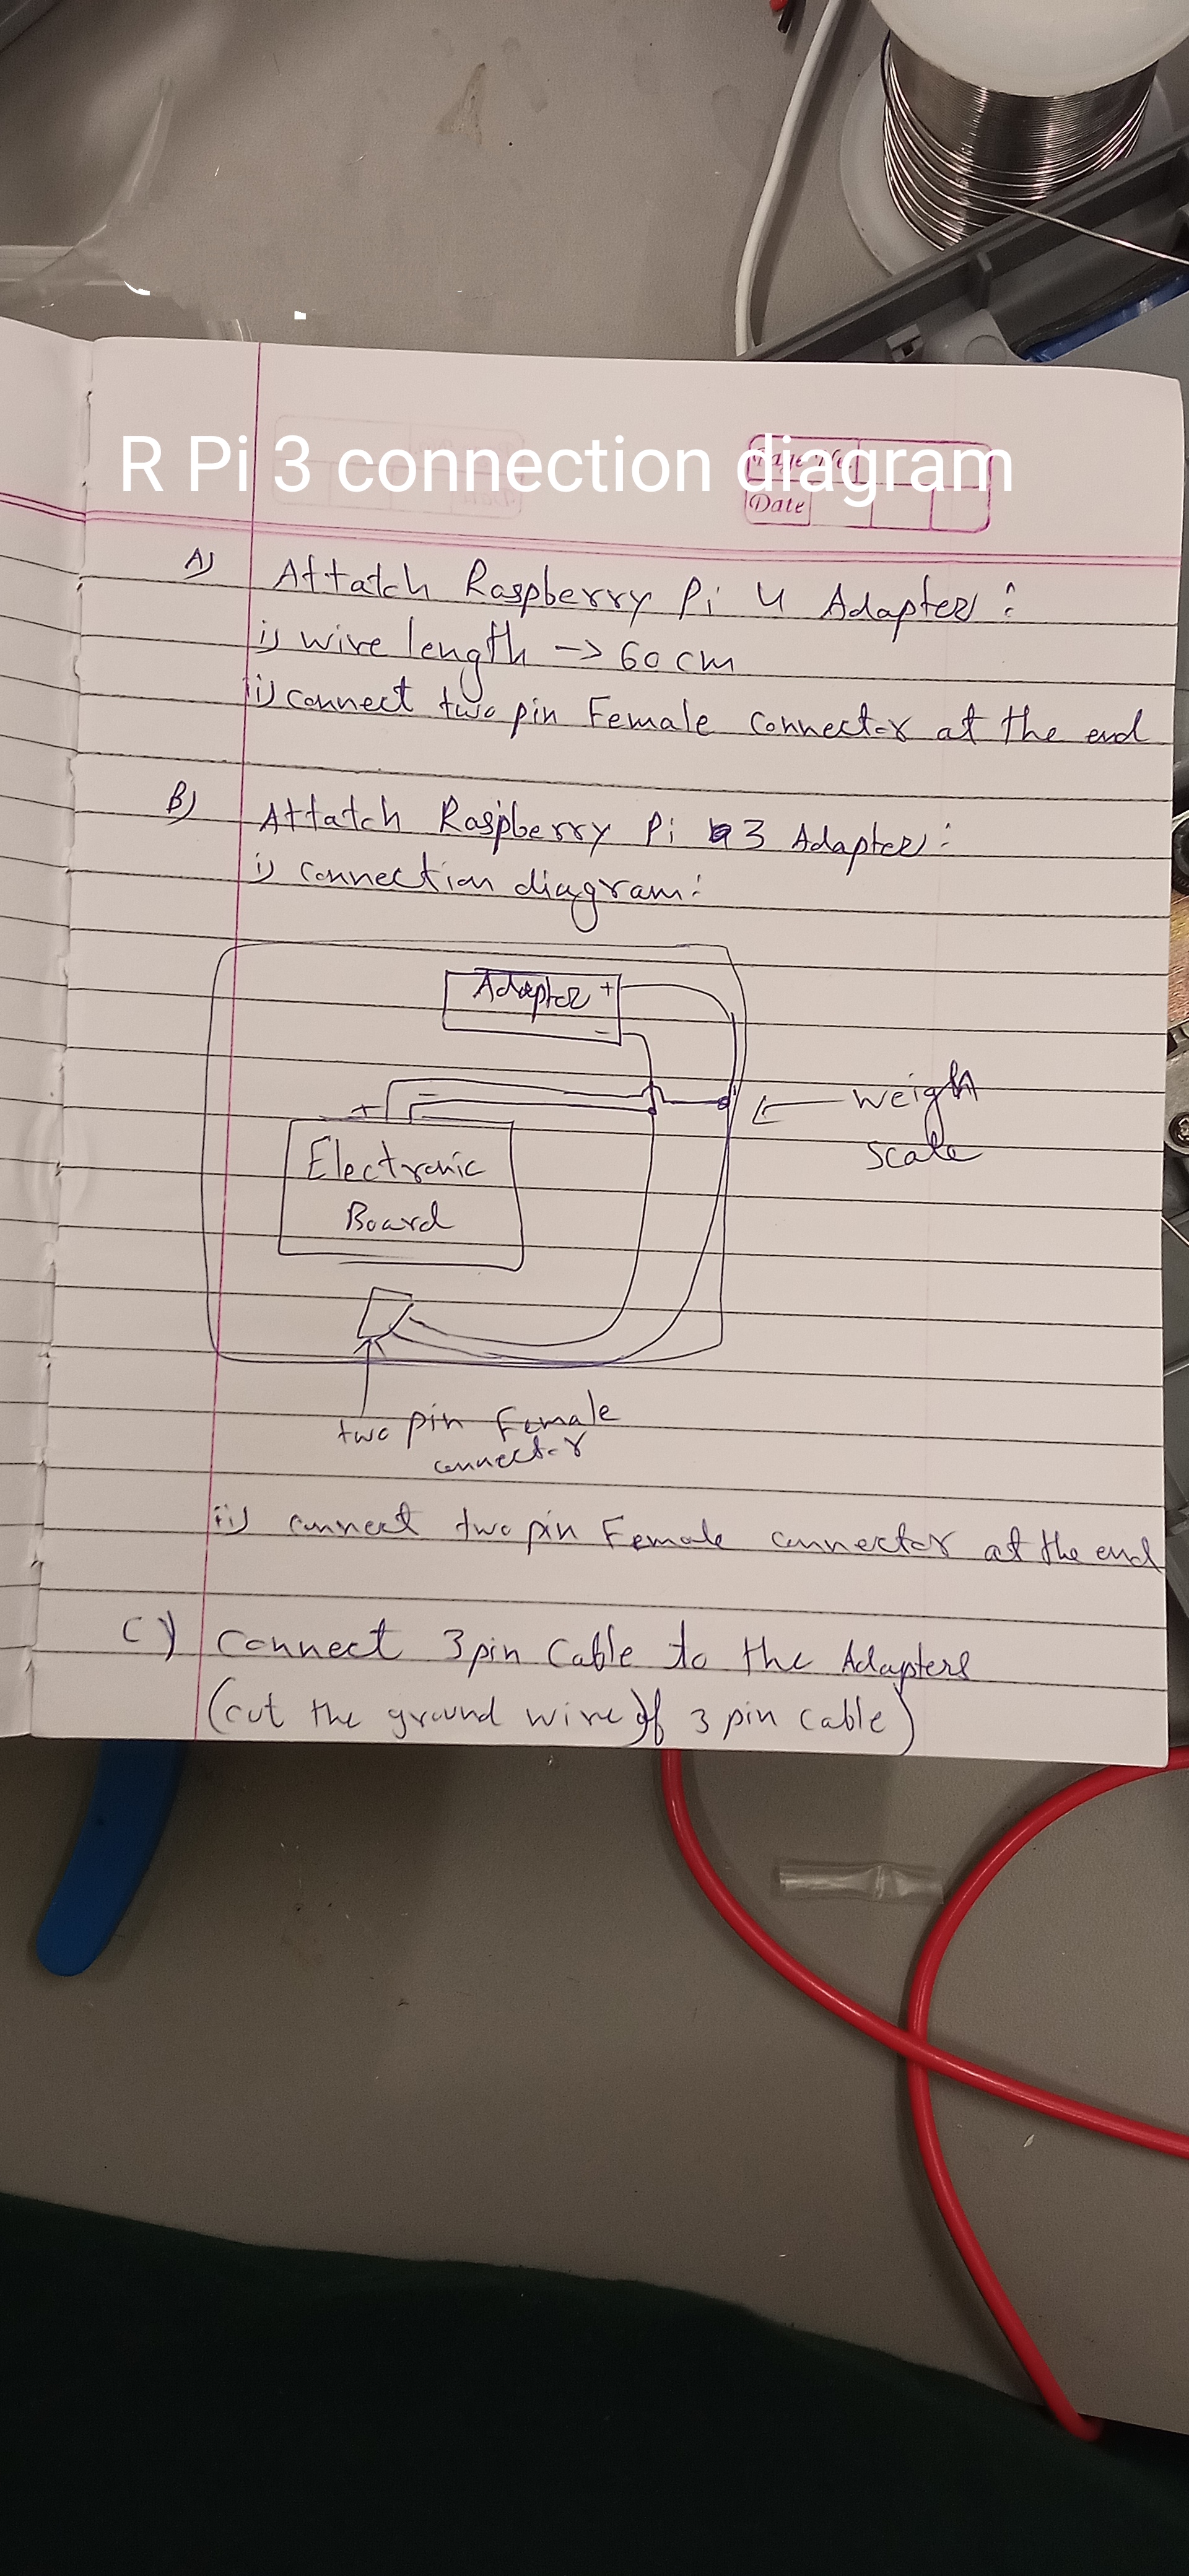 R Pi 3 connection diagram
Page No.
Date
A) Attatch Raspberry Pi 4 Adapter :
i) wire length -> 60 cm
ii) connect two pin Female connector at the end
B) Attatch Raspberry Pi 3 Adapter :
i) connection diagram :
Adapter +
-
+ -
Electronic
Board
weigh
scale
two pin Female
connector
ii) connect two pin Female connector at the end
C) Connect 3 pin Cable to the Adapters
(cut the ground wire of 3 pin cable)